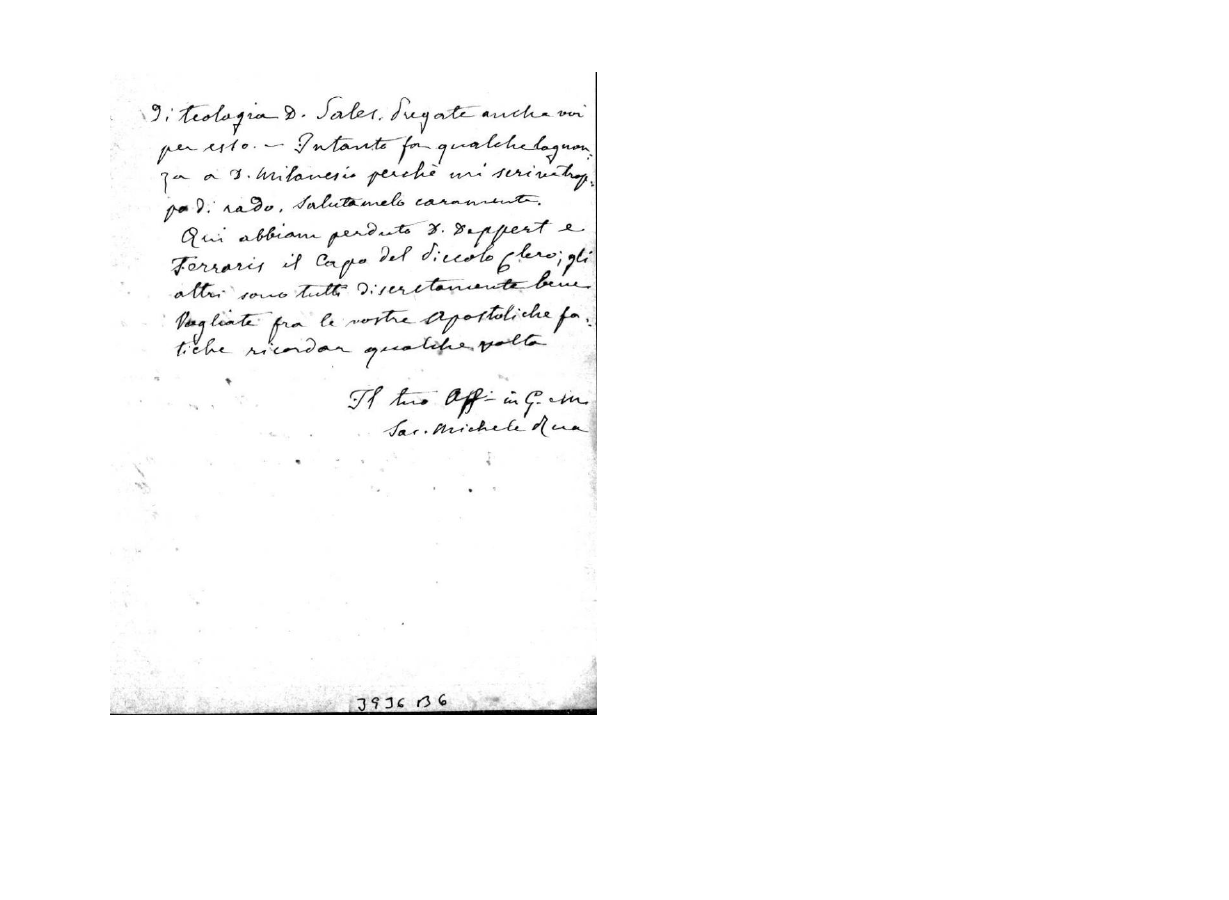 di teologia D. Sales. Pregate anche voi
per esso. — Intanto fa qualche lagnan-
za a D. Milanesio perchè mi scrive trop-
po di rado. Salutamelo caramente.
Qui abbiam perduto D. Deppert e
Ferraris il Capo del Piccolo Clero; gli
altri sono tutti discretamente bene.
Vogliate fra le vostre Apostoliche fa-
tiche ricordar qualche volta
Il tuo Aff. in G. e M.
Sac. Michele Rua
3936 B6